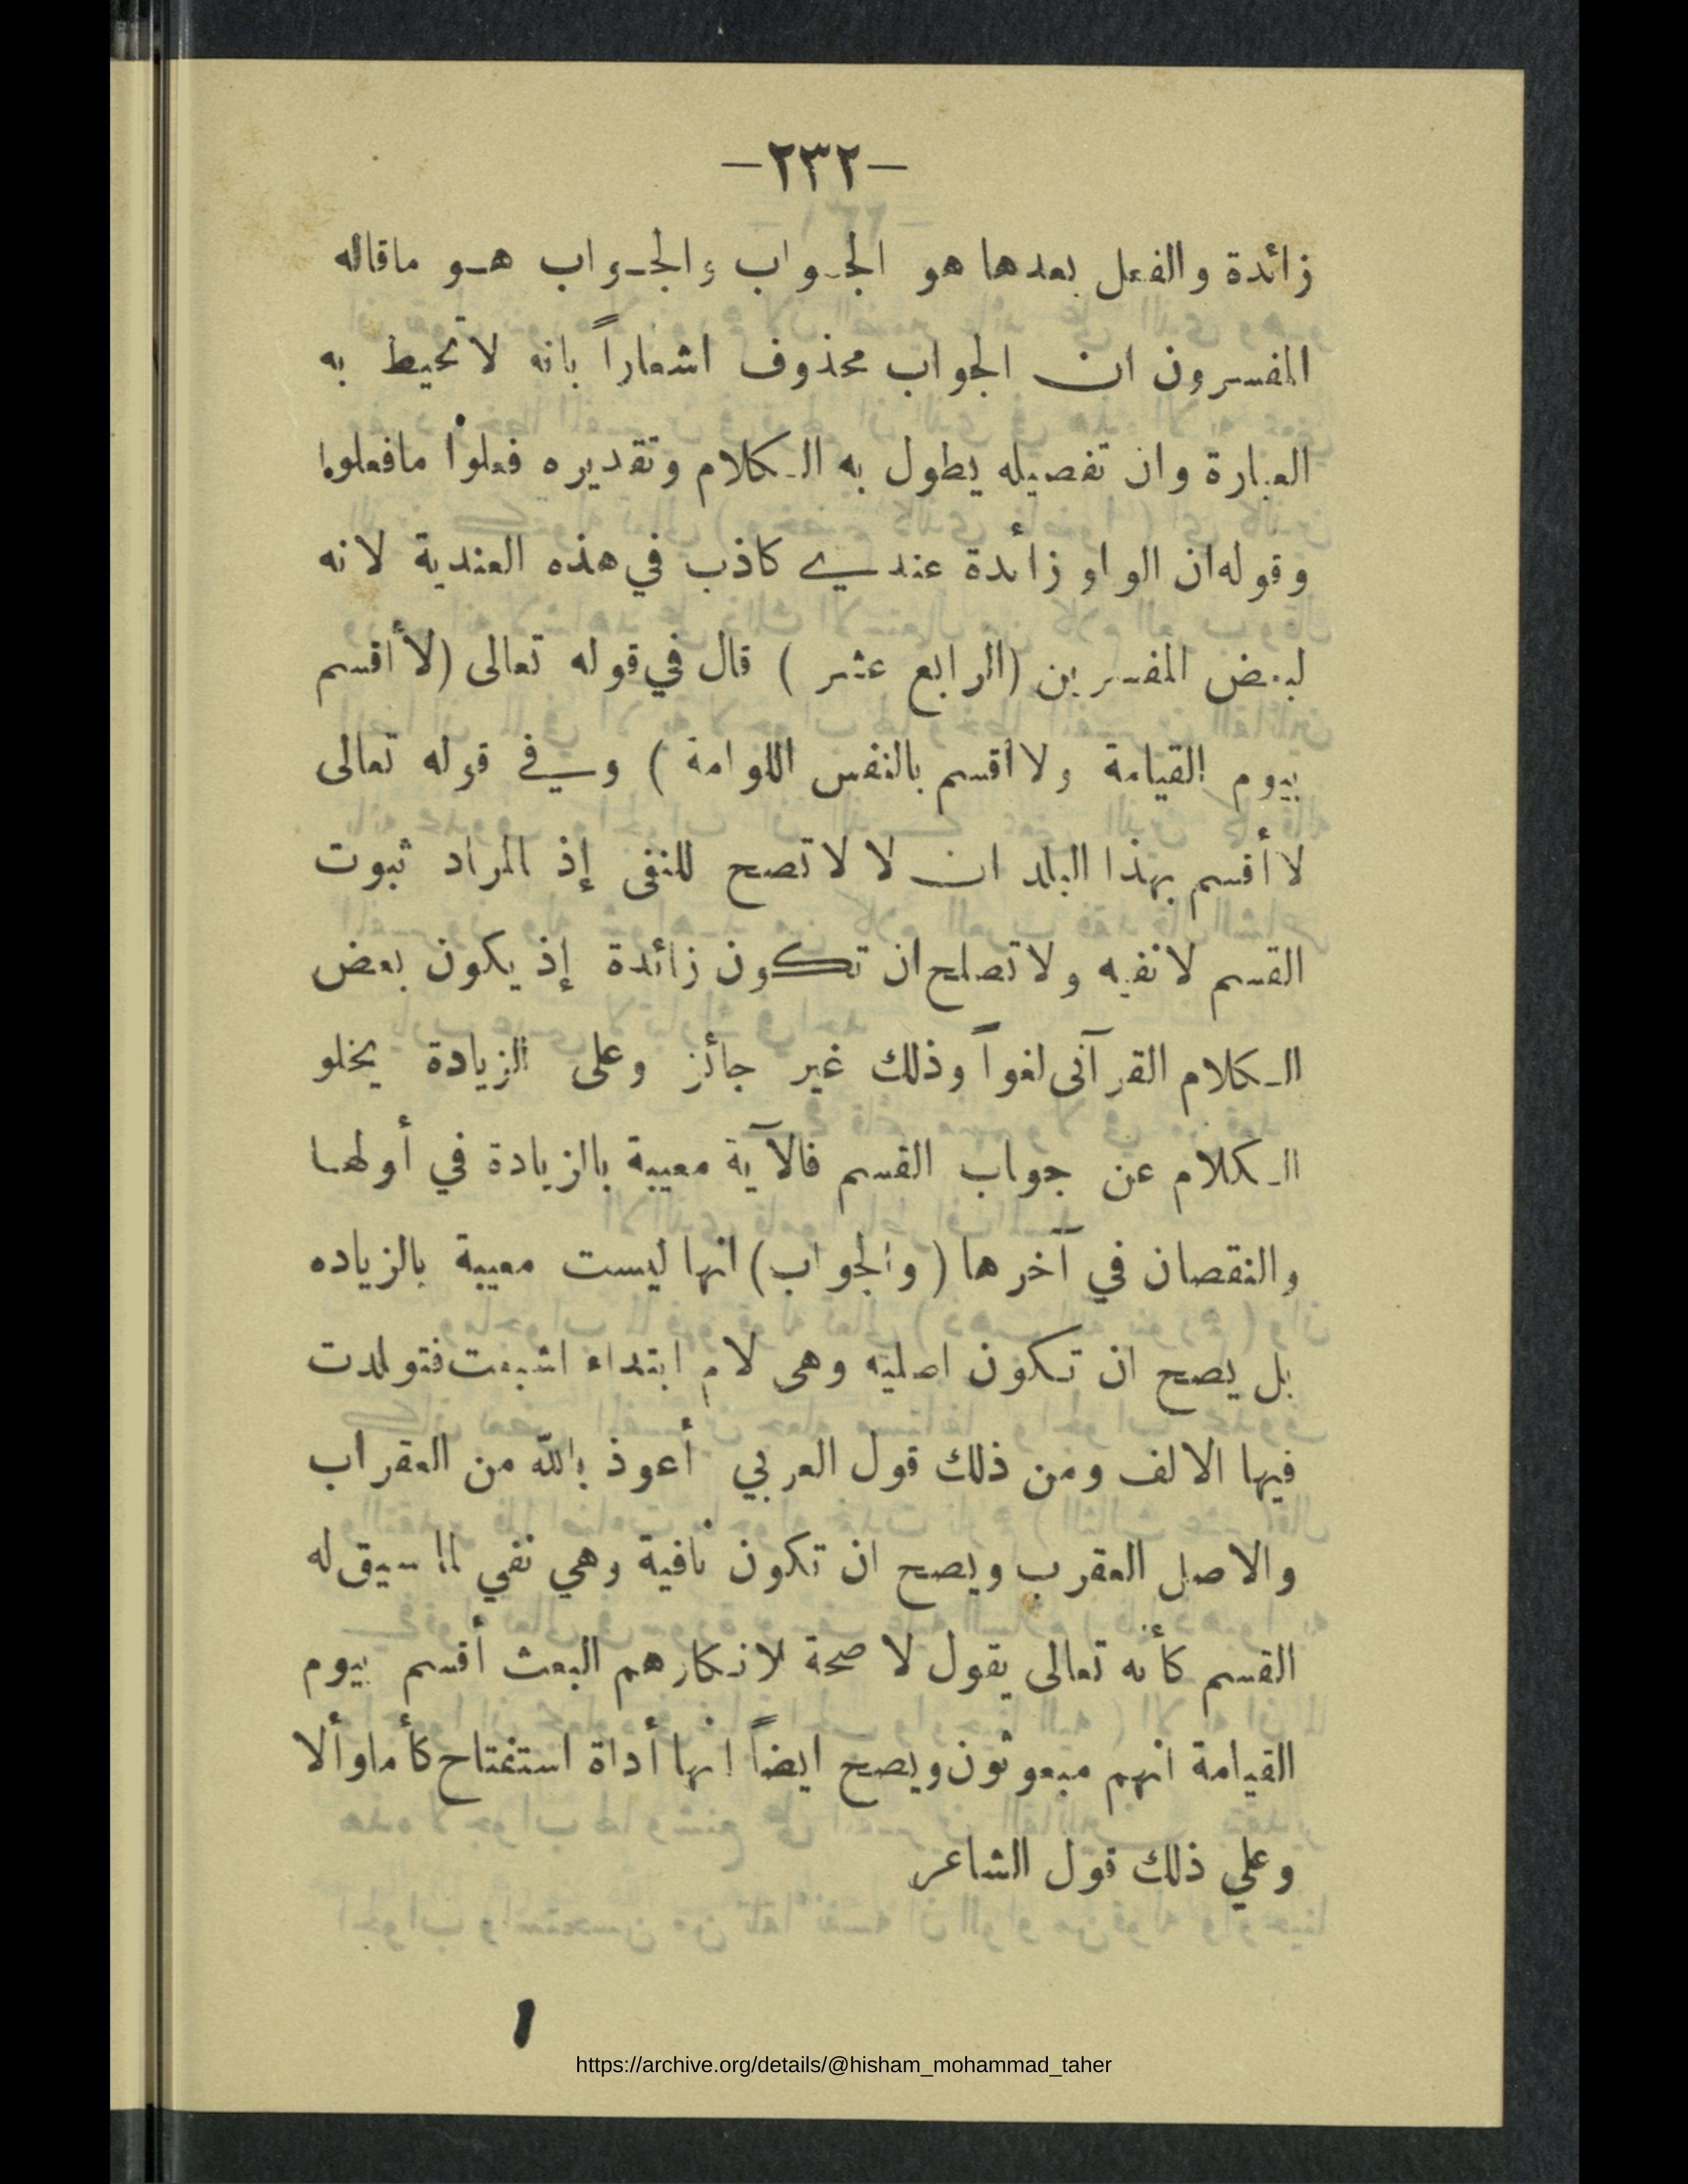 —٢٣٢—
زائدة والفعل بعدها هو الجـواب والجـواب هـو ماقاله
المفسرون ان الجواب محذوف اشعاراً بانه لاتحيط به
العبارة وان تفصيله يطول به الـكلام وتقديره فعلوا مافعلوا
وقوله ان الواو زائدة عندي كاذب في هذه العندية لانه
لبعض المفسرين (الرابع عشر ) قال في قوله تعالى (لاأقسم
بيوم القيامة ولاأقسم بالنفس اللوامة ) وفي قوله تعالى
لاأقسم بهذا البلد ان لا لاتصح للنفى إذ المراد ثبوت
القسم لانفيه ولاتصلح ان تكون زائدة إذ يكون بعض
الـكلام القرآنى لغواً وذلك غير جائز وعلى الزيادة يخلو
الـكلام عن جواب القسم فالآية معيبة بالزيادة في أولهـا
والنقصان في آخرها (والجواب) انها ليست معيبة بالزياده
بل يصح ان تـكون اصليه وهى لام ابتداء اشبعت فتولدت
فيها الالف ومن ذلك قول العربي أعوذ بالله من العقراب
والاصل العقرب ويصح ان تكون نافية وهي نفي لما سيق له
القسم كأنه تعالى يقول لا صحة لانكارهم البعث أقسم بيوم
القيامة انهم مبعوثون ويصح ايضاً انها أداة استفتاح كأما وألا
وعلي ذلك قول الشاعر
https://archive.org/details/@hisham_mohammad_taher